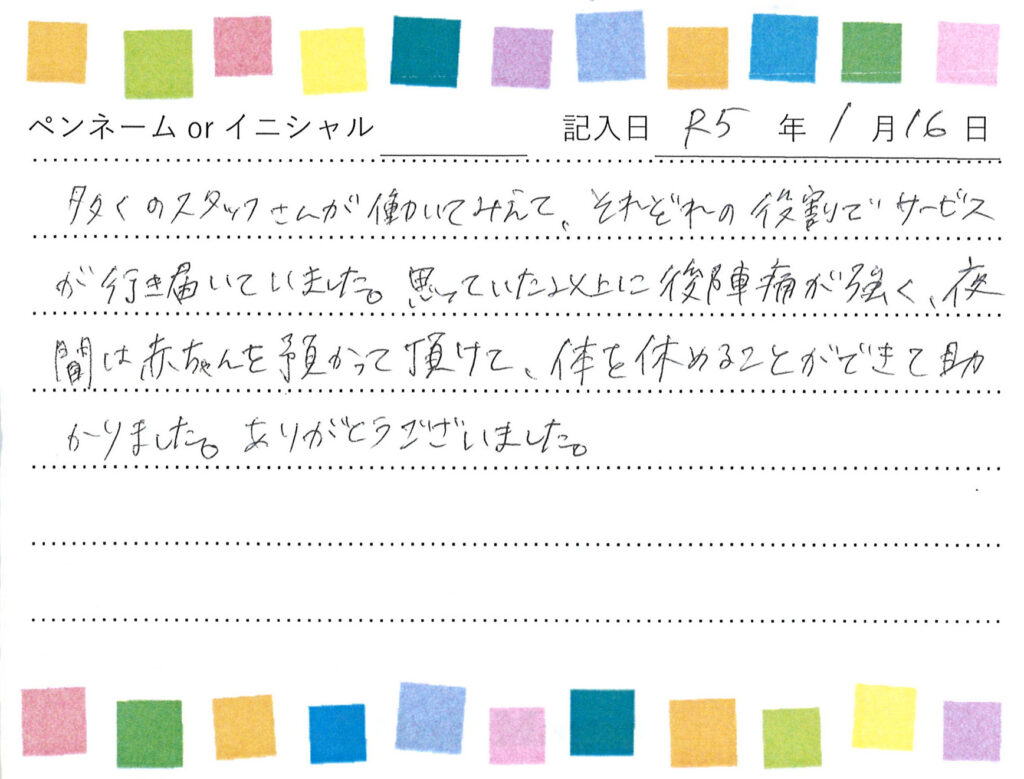 ペンネーム or イニシャル 記入日 R5 年 1 月 16 日
多くのスタッフさんが働いてみえて、それぞれの役割でサービス
が行き届いていました。思っていた以上に後陣痛が強く、夜
間は赤ちゃんを預かって頂けて、体を休めることができて助
かりました。ありがとうございました。